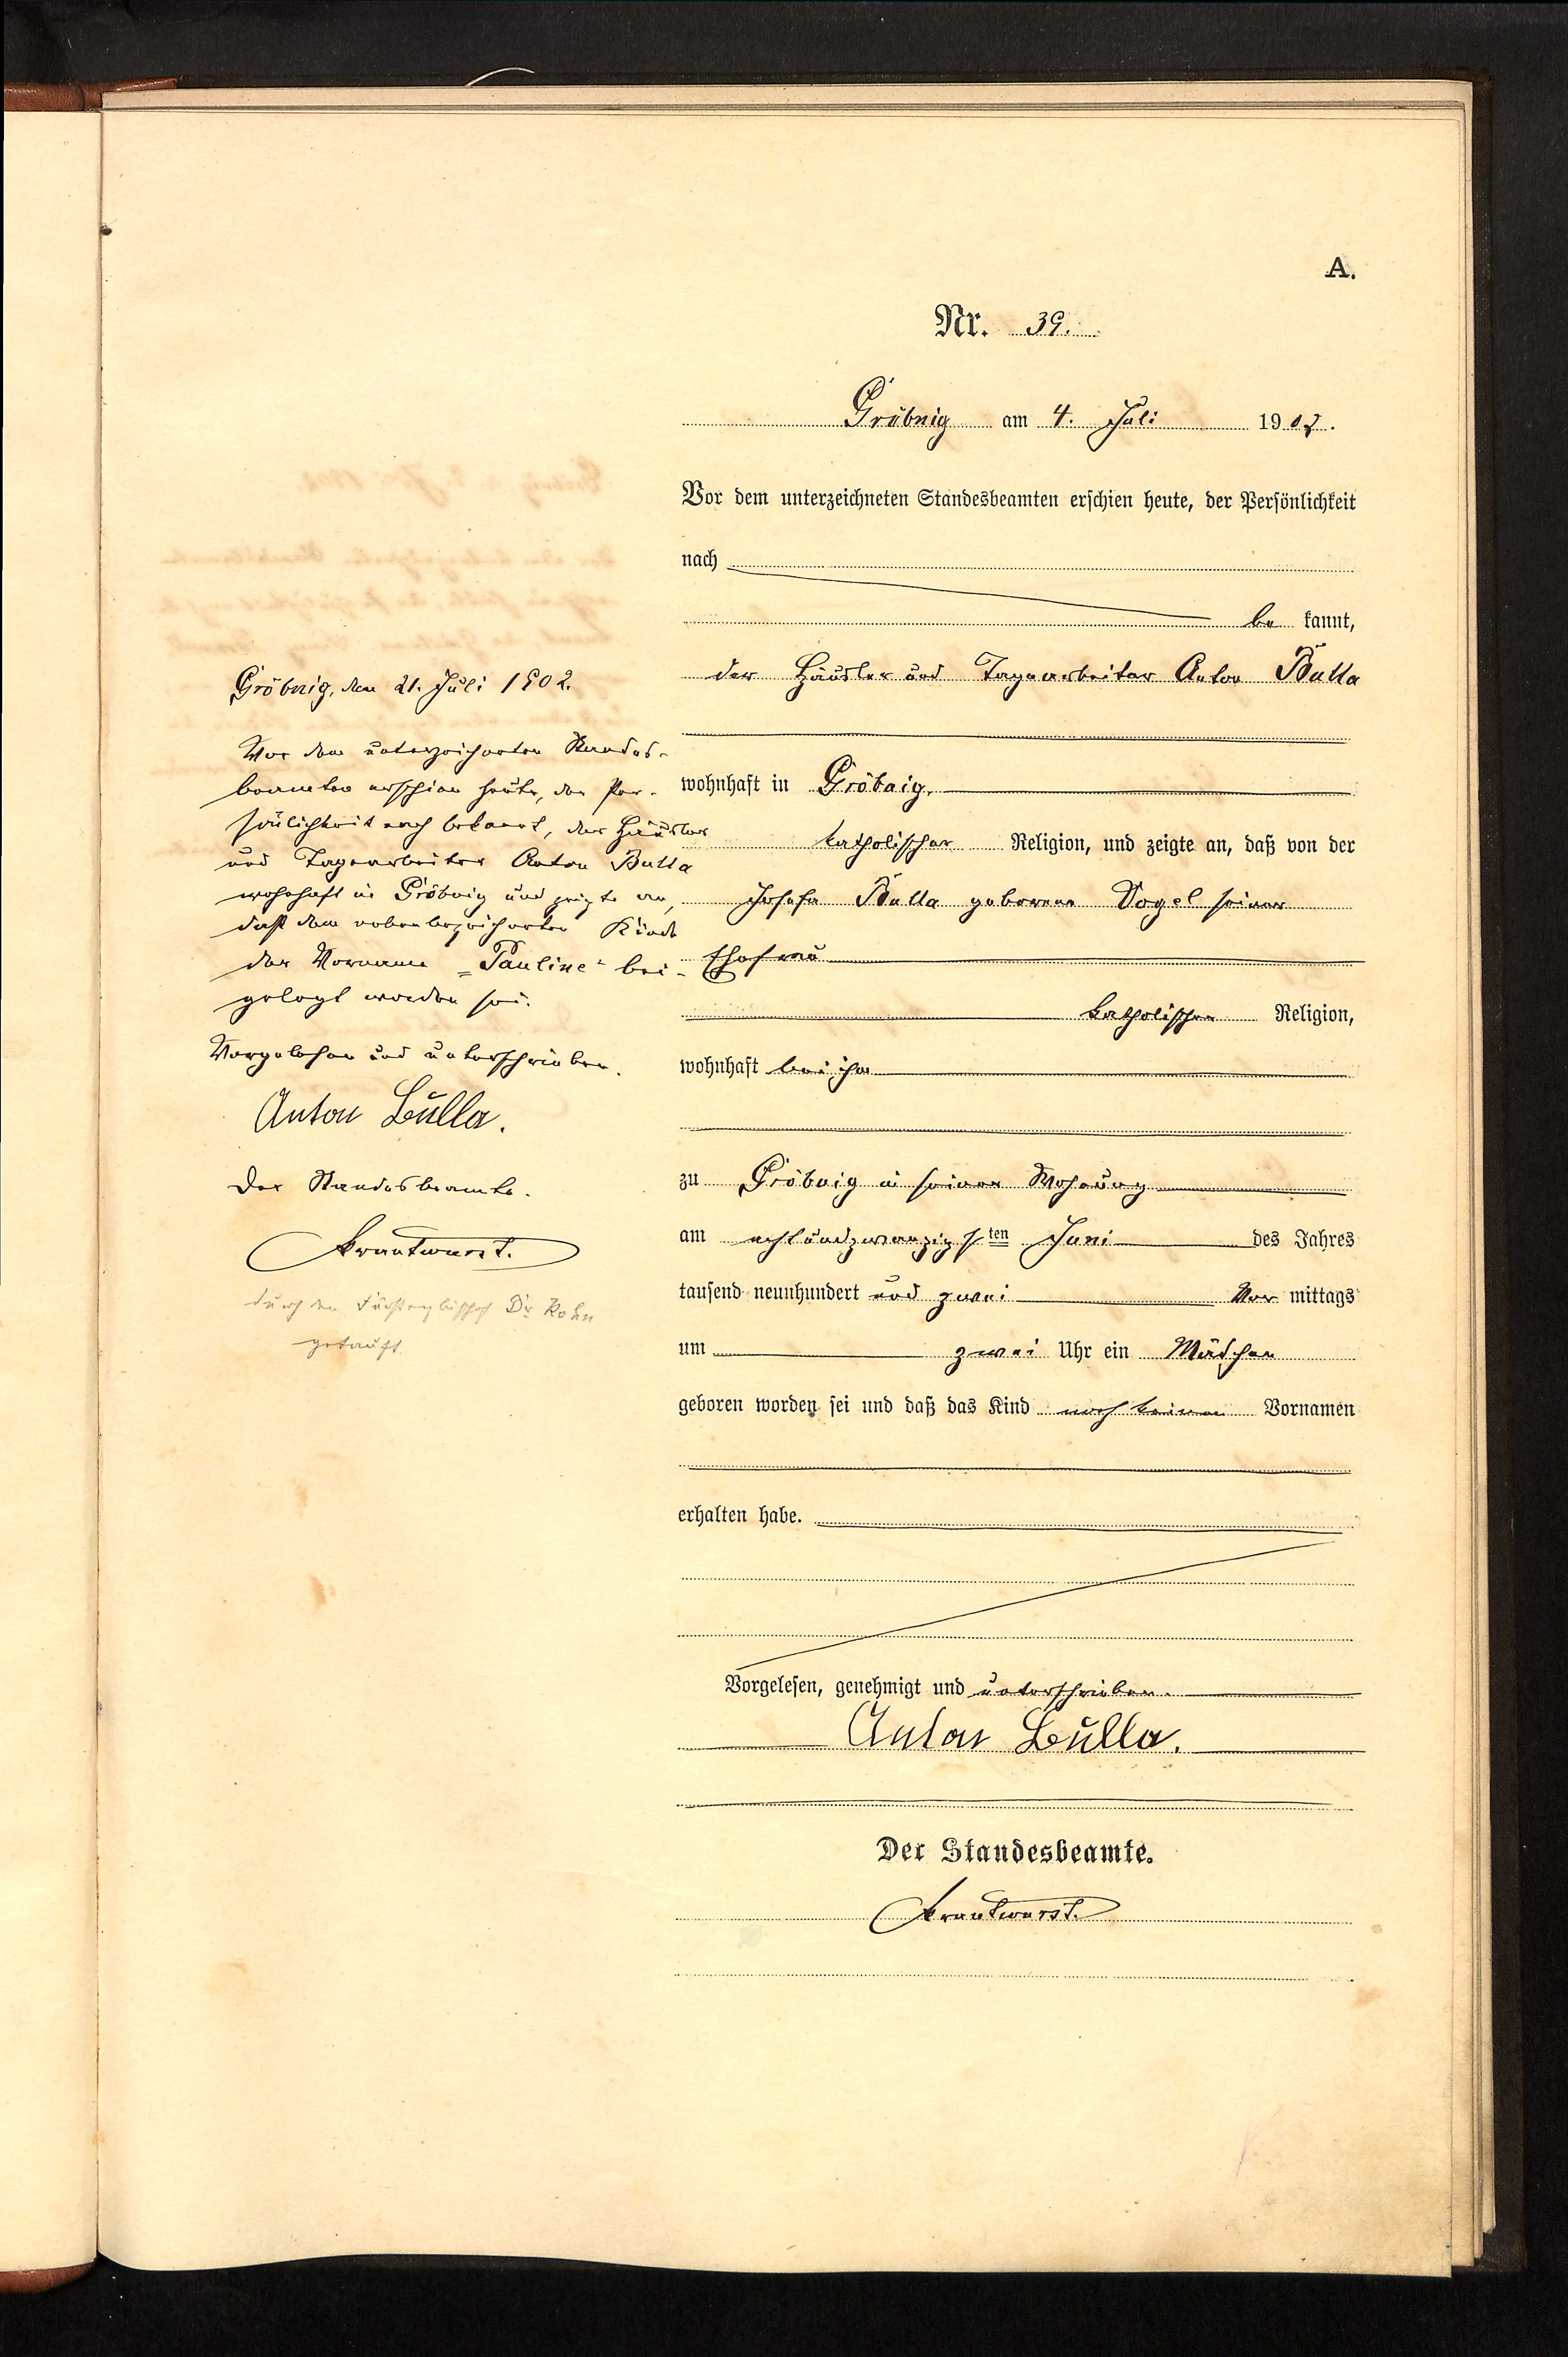 A.
Nr. 39.
Gröbnig am 4. Juli 1902.
Vor dem unterzeichneten Standesbeamten erschien heute, der Persönlichkeit
nach
be kannt,
der Häusler und Tagearbeiter Anton Bulla
wohnhaft in Gröbnig,
katholischer Religion, und zeigte an, daß von der
Josefa Bulla geborene Vogel seiner
Ehefrau
katholischen Religion,
wohnhaft bei ihm
zu Gröbnig in seiner Wohnung
am achtundzwanzigsten Juni des Jahres
tausend neunhundert und zwei Vor mittags
um zwei Uhr ein Mädchen
geboren worden sei und daß das Kind noch keinen Vornamen
erhalten habe.
Vorgelesen, genehmigt und unterschrieben.
Anton Bulla.
Der Standesbeamte.
Krautwurst.
Gröbnig, den 21. Juli 1902.
Vor dem unterzeichneten Standes-
beamten erschien heute, der Per-
sönlichkeit nach bekannt, der Häusler
und Tagearbeiter Anton Bulla
wohnhaft in Gröbnig und zeigte an,
daß dem nebenbezeichneten Kinde
der Vorname „Pauline" bei-
gelegt worden sei.
Vorgelesen und unterschrieben.
Anton Bulla.
Der Standesbeamte.
Krautwurst.
durch den Fürsterzbischof Dr Kohn
getauft.